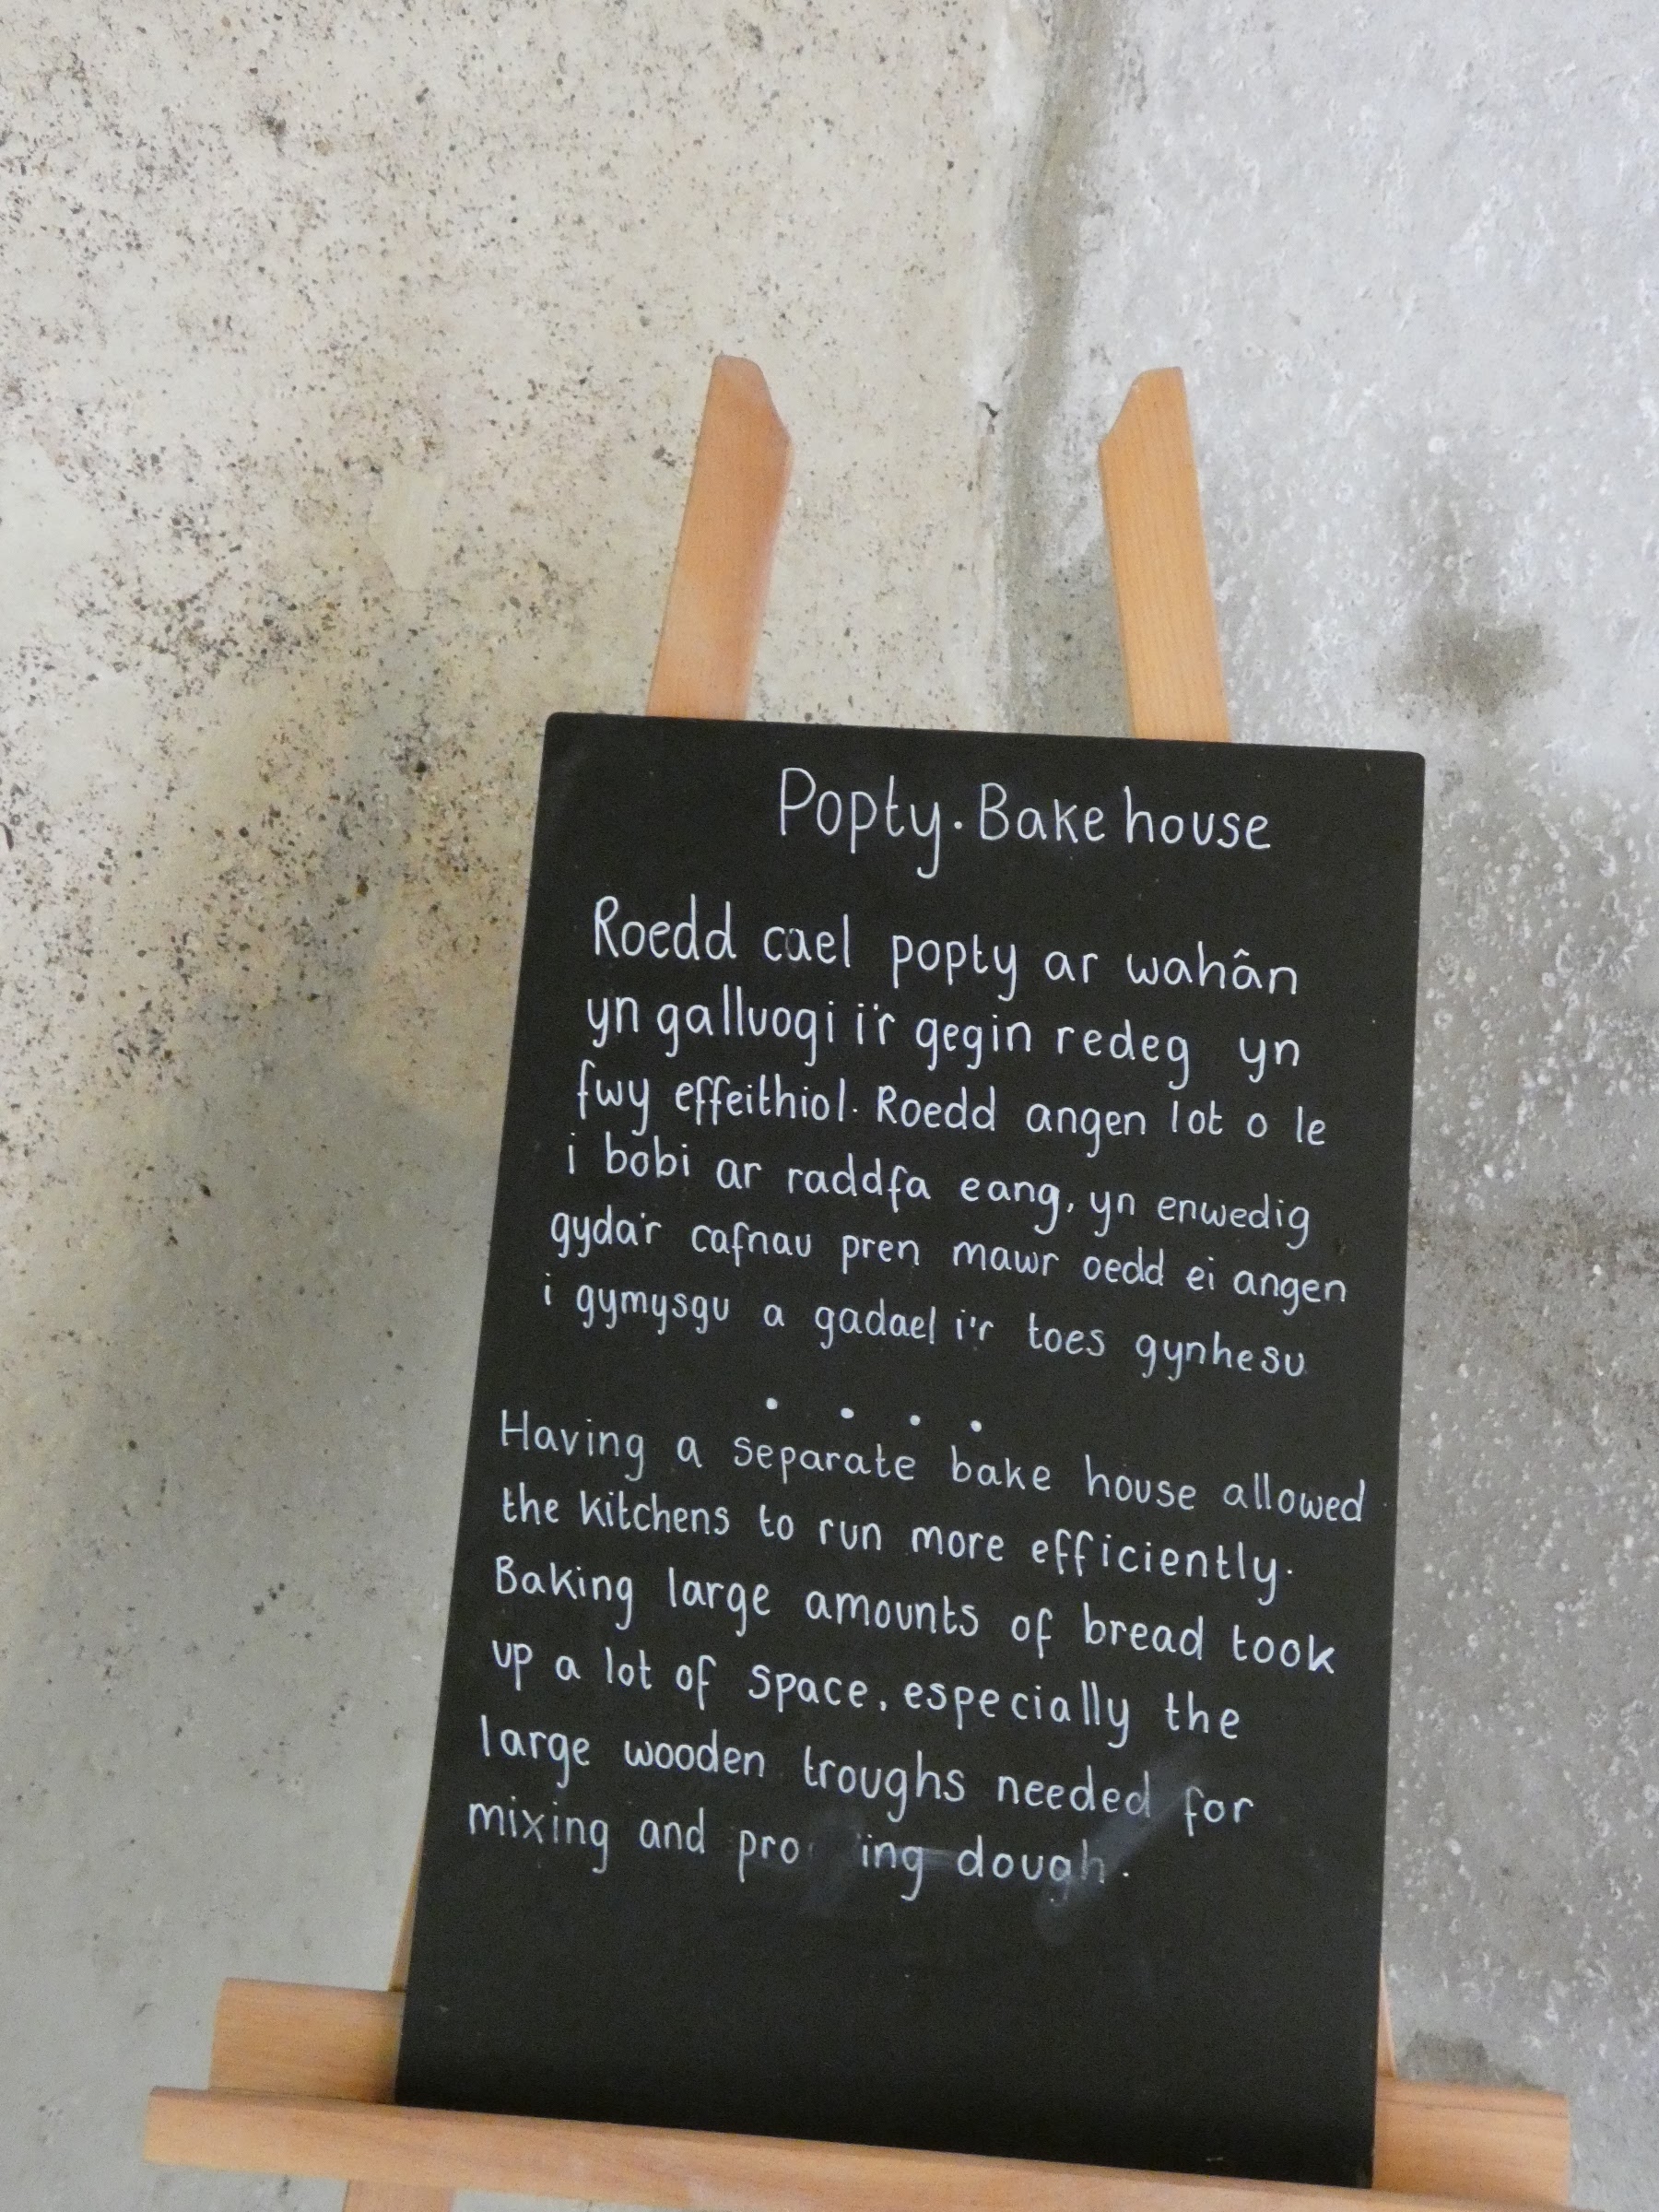 Popty · Bake house
Roedd cael popty ar wahân
yn galluogi i'r gegin redeg yn
fwy effeithiol. Roedd angen lot o le
i bobi ar raddfa eang, yn enwedig
gyda'r cafnau pren mawr oedd ei angen
i gymysgu a gadael i'r toes gynhesu
. . . .
Having a separate bake house allowed
the kitchens to run more efficiently.
Baking large amounts of bread took
up a lot of space, especially the
large wooden troughs needed for
mixing and dough.